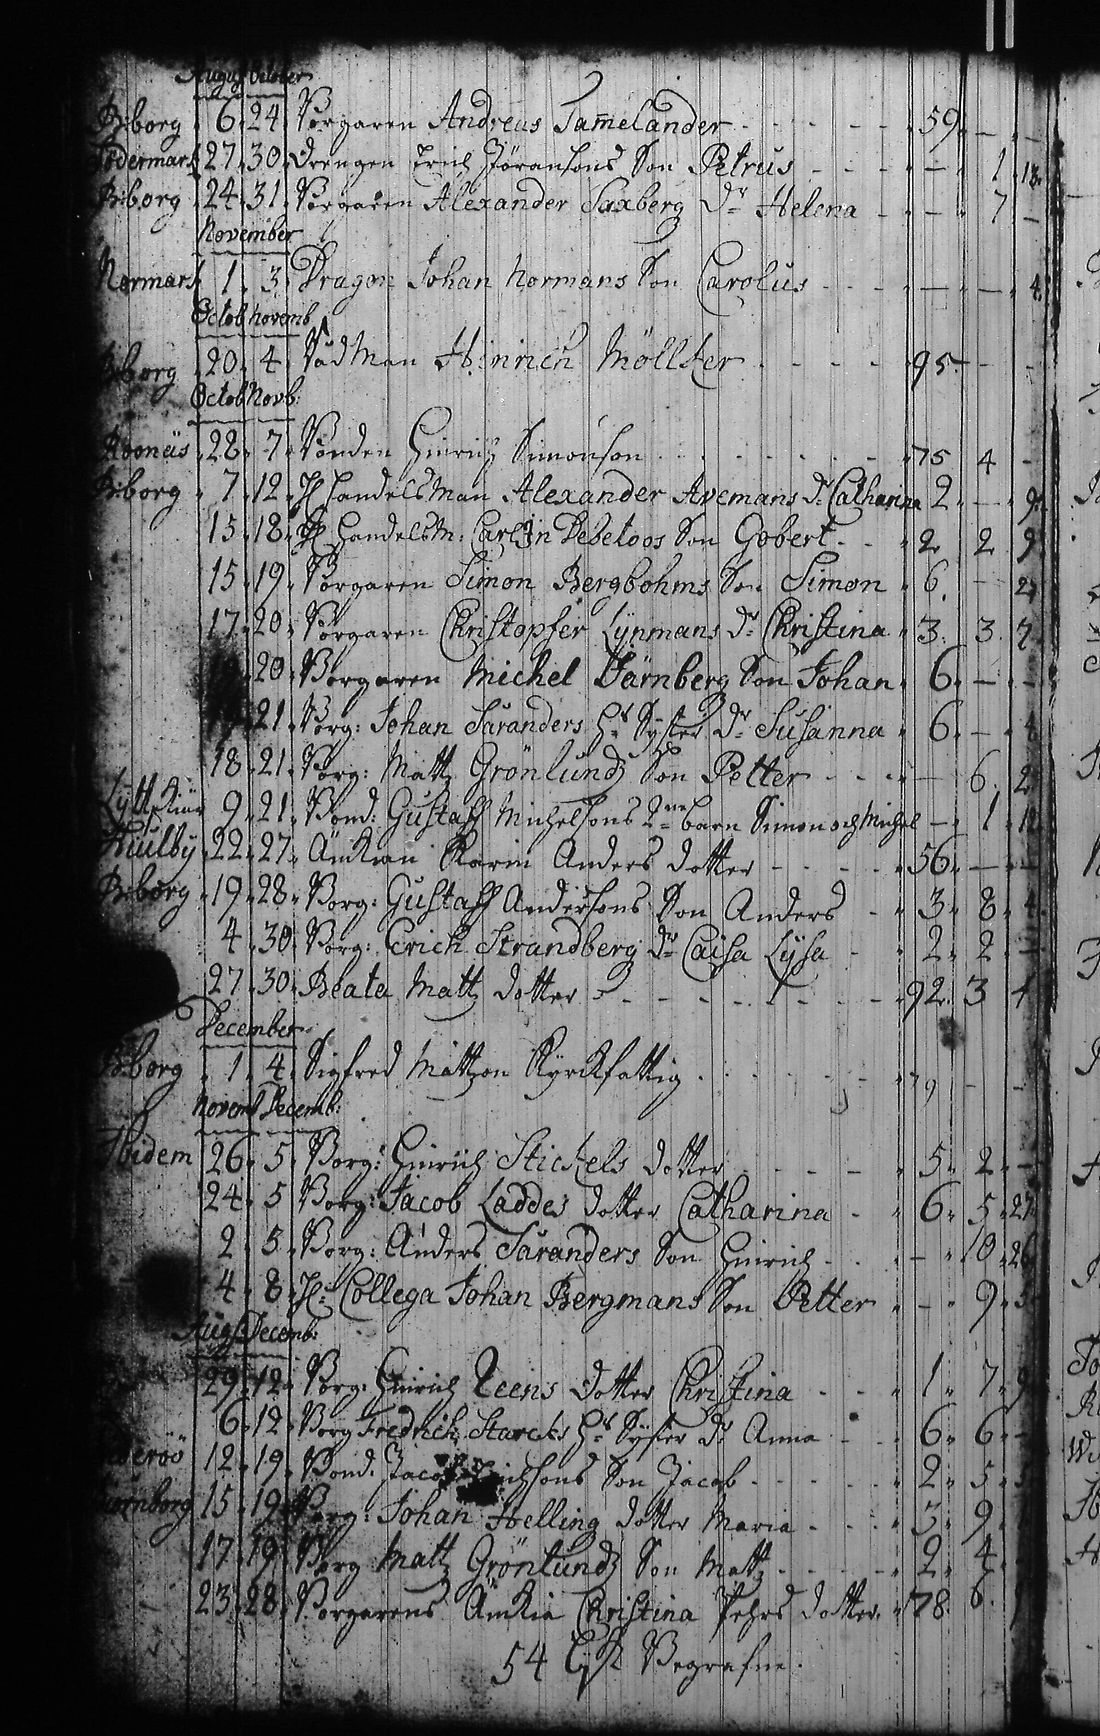 August October
B:borg 6 24 Borgaren Andreas Samelander 59 — —
Södermark 27 30 Drengen Erich Jöransons Son Petrus — 1 13
B:borg 24 31 Borgaren Alexander Saxberg Dr Helena — 7 —
November
Normark 1 3 Dragon Johan Normans Son Carolus — — 4
Octob Novemb
B:borg 20 4 Rådman Hinrich Möllster 95 — —
Octob Novb:
28 7 Bonden Hinrich Simonson 75 4 —
B:borg 7 12 H HandelsMan Alexander Avemans Dr Catharina 2 — 9
15 18 H HandelsM: Carl Debeloos Son Gobert 2 2 9
15 19 Borgaren Simon Bergbohms Son Simon 6 — 2
17 20 Borgaren Christopfer Lynmans Dr Christina 3 3 7
20 Borgaren Michel Son Johan 6 — —
21 Borg: Johan Saranders Hs Syster Dr Susanna 6 — 4
18 21 Borg: Matts Grönlunds Son Petter — 6 2
9 21 Bond: Gustaff Michelsons 2ne barn Simon och Michel — 1
22 27 Änkian Karin Anders dotter 56 — —
B:borg 19 28 Borg: Gustaff Andersons Son Anders 3 8 4
4 30 Borg: Erich Strandberg Dr Caisa Lysa 2 2 —
27 30 Beata Matts dotter 92 3 4
December
B:borg 1 4 Sigfred Mattzon Kyrckfattig 79 — —
Novemb Decemb:
Ibidem 26 5 Borg: Hinrich Stickels dotter 5 2 —
24 5 Borg: Jacob Laddes dotter Catharina 6 5 27
2 5 Borg: Anders Saranders Son Hinrich — 10 26
4 8 H: Collega Johan Bergmans Son Petter — 9 5
Aug Decemb:
29 12 Borg: Hinrich Teens dotter Christina 1 7 9
6 12 Borg Fredrich Starcks Hs Syster Dr Anna 6 6 —
12 19 Bond. Jacob Erichsons Son Jacob 2 5 5
15 19 Borg: Johan Helling dotter Maria 3 9
17 19 Borg Matts Grönlunds Son Matts 2 4
23 28 Borgarens Änkia Christina Pehrs dotter 78 6
54 Begrafne.